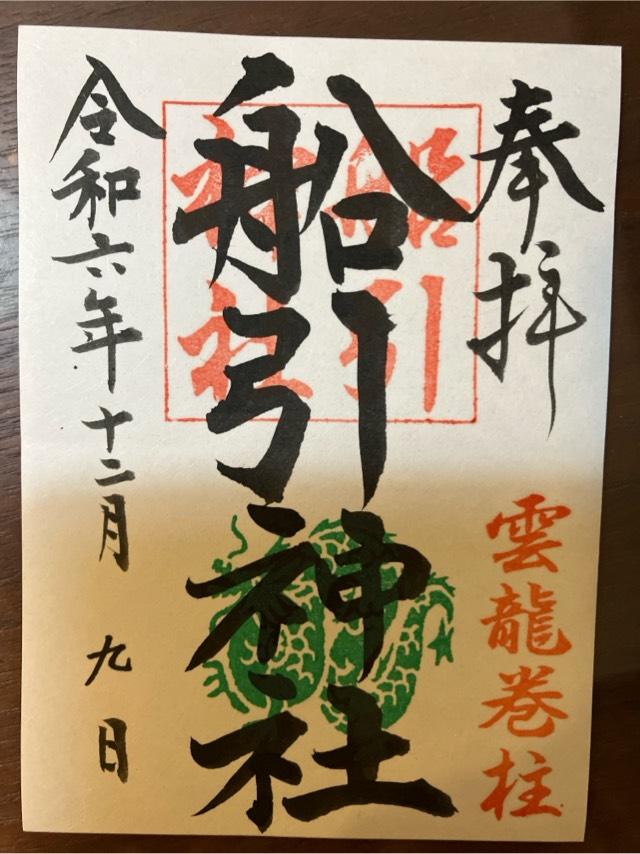 奉拝
雲龍巻柱
船引神社
船引
神社
令和六年十二月九日